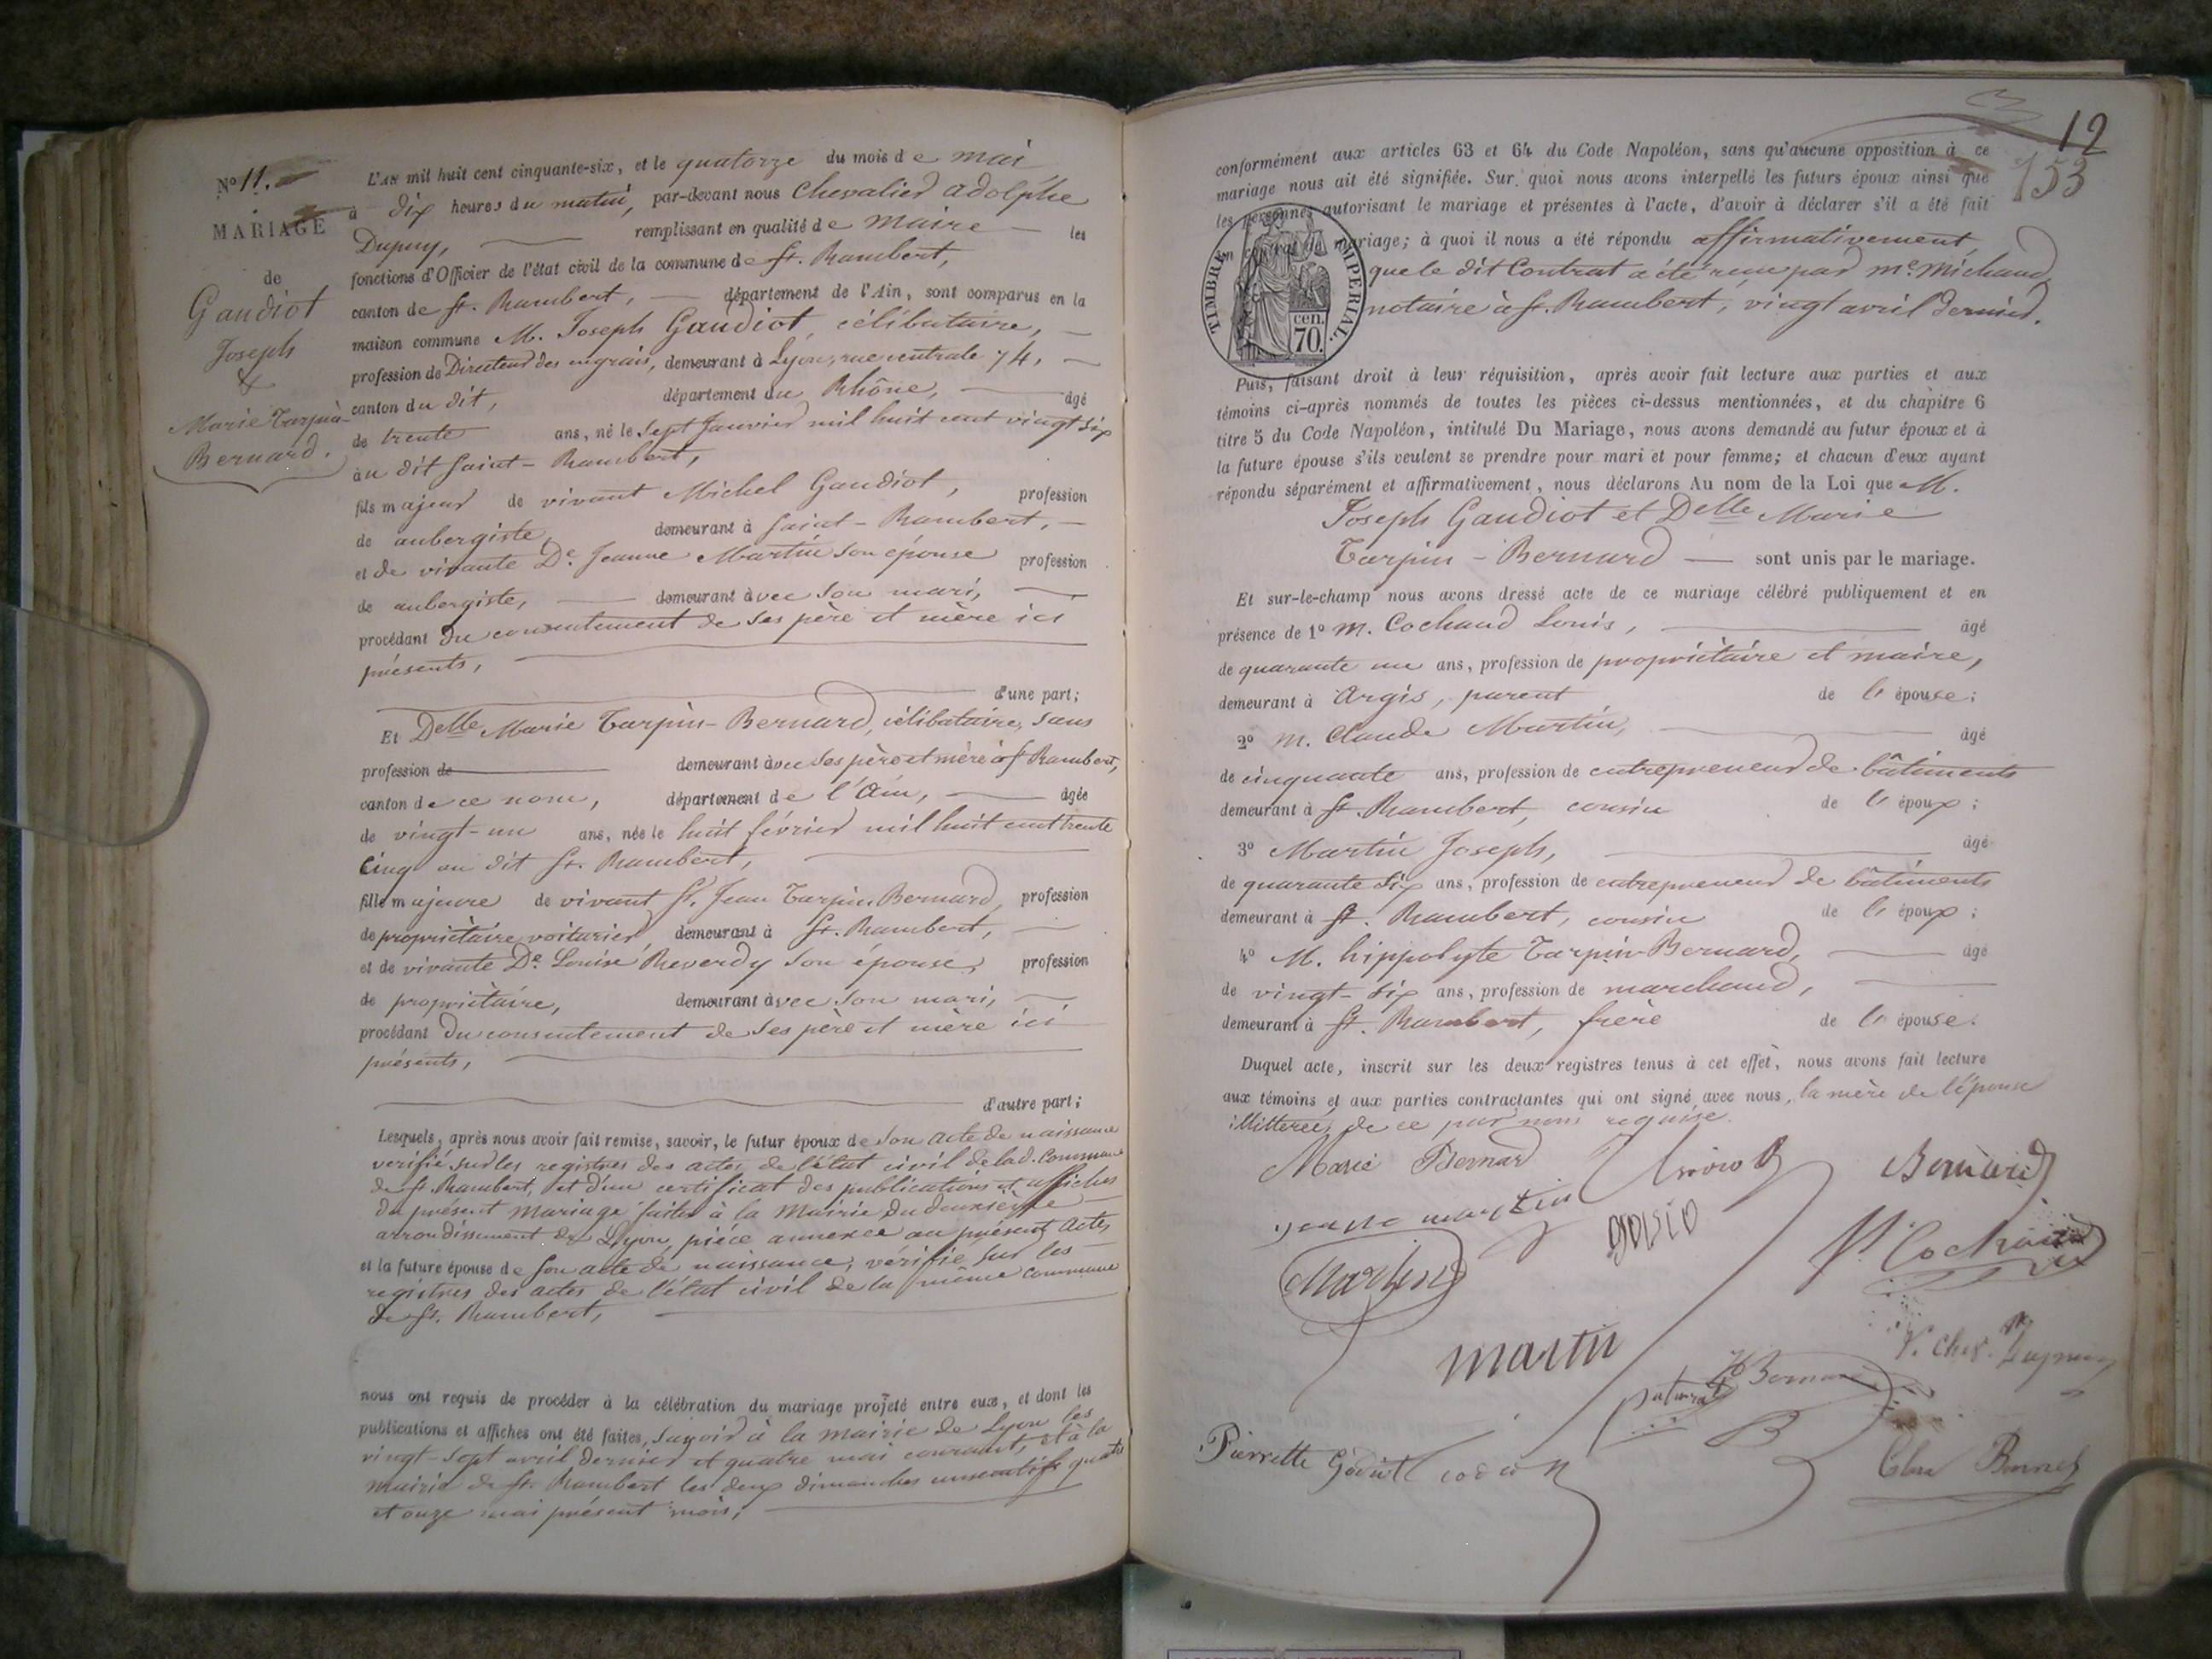 N° 11.
MARIAGE
de
Gaudiot
Joseph
&
Marie Tarpin-
Bernard.
L'An mil huit cent cinquante-six, et le quatorze du mois de mai
à dix heures du matin, par-devant nous Chevalier Adolphe
Dupuy, remplissant en qualité de maire les
fonctions d'Officier de l'état civil de la commune de St. Rambert,
canton de St. Rambert, département de l'Ain, sont comparus en la
maison commune M. Joseph Gaudiot, célibataire,
profession de Directeur des engrais, demeurant à Lyon, rue centrale 74,
canton du dit, département du Rhône, âgé
de trente ans, né le sept Janvier mil huit cent vingt six
au dit Saint-Rambert,
fils majeur de vivant Michel Gaudiot, profession
de aubergiste, demeurant à Saint-Rambert,
et de vivante De. Jeanne Martin son épouse profession
de aubergiste, demeurant avec son mari,
procédant du consentement de ses père et mère ici
présents,
d'une part;
Et Delle Marie Tarpin-Bernard, célibataire, sans
profession de demeurant avec ses père et mère à St Rambert,
canton de ce nom, département de l'Ain, âgée
de vingt-un ans, née le huit février mil huit cent trente
cinq au dit St. Rambert,
fille majeure de vivant Sr. Jean Tarpin Bernard, profession
de propriétaire voiturier, demeurant à St. Rambert,
et de vivante De. Louise Reverdy son épouse, profession
de propriétaire, demeurant avec son mari,
procédant du consentement de ses père et mère ici
présents,
d'autre part;
Lesquels, après nous avoir fait remise, savoir, le futur époux de son acte de naissance
vérifié sur les registres des actes de l'état civil de lad. Commune
de St. Rambert, et d'un certificat des publications et affiches
du présent mariage faites à la Mairie du deuxième
arrondissement de Lyon, pièce annexée au présent acte,
et la future épouse de son acte de naissance, vérifié sur les
registres des actes de l'état civil de la même commune
de St. Rambert,
nous ont requis de procéder à la célébration du mariage projeté entre eux, et dont les
publications et affiches ont été faites, savoir à la mairie de Lyon les
vingt-sept avril dernier et quatre mai courant, et à la
mairie de St. Rambert les deux dimanches consécutifs quatre
et onze mai présent mois,
12
153
conformément aux articles 63 et 64 du Code Napoléon, sans qu'aucune opposition à ce
mariage nous ait été signifiée. Sur quoi nous avons interpellé les futurs époux ainsi que
les personnes autorisant le mariage et présentes à l'acte, d'avoir à déclarer s'il a été fait
un contrat de mariage; à quoi il nous a été répondu affirmativement,
que le dit Contrat a été reçu par me. Michaud,
notaire à St. Rambert, vingt avril dernier.
TIMBRE IMPERIAL.
cen.
70.
Puis, faisant droit à leur réquisition, après avoir fait lecture aux parties et aux
témoins ci-après nommés de toutes les pièces ci-dessus mentionnées, et du chapitre 6
titre 5 du Code Napoléon, intitulé Du Mariage, nous avons demandé au futur époux et à
la future épouse s'ils veulent se prendre pour mari et pour femme; et chacun d'eux ayant
répondu séparément et affirmativement, nous déclarons Au nom de la Loi que M.
Joseph Gaudiot et Delle Marie
Tarpin-Bernard sont unis par le mariage.
Et sur-le-champ nous avons dressé acte de ce mariage célébré publiquement et en
présence de 1° M. Cochaud Louis, âgé
de quarante un ans, profession de propriétaire et maire,
demeurant à Argis, parent de l'épouse;
2° M. Claude Martin, âgé
de cinquante ans, profession de entrepreneur de bâtiments
demeurant à St. Rambert, cousin de l'époux;
3° Martin Joseph, âgé
de quarante six ans, profession de entrepreneur de bâtiments
demeurant à St. Rambert, cousin de l'époux;
4° M. hippolyte Tarpin-Bernard, âgé
de vingt-six ans, profession de marchand,
demeurant à St. Rambert, frère de l'épouse.
Duquel acte, inscrit sur les deux registres tenus à cet effet, nous avons fait lecture
aux témoins et aux parties contractantes qui ont signé avec nous, la mère de l'épouse
illitérée, de ce par nous requise.
Marie Bernard
Bernard
Cochaud
Martin
martin
Pierrette